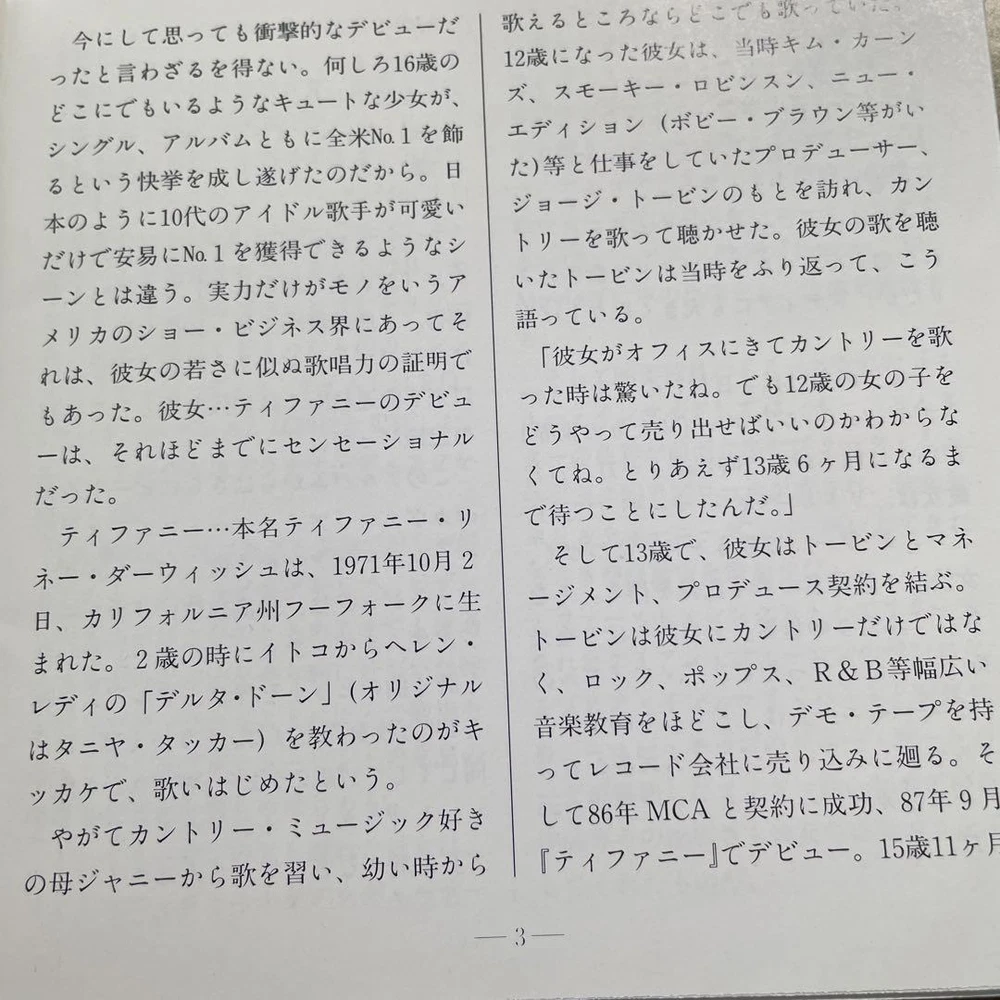 今にして思っても衝撃的なデビューだ
ったと言わざるを得ない。何しろ16歳の
どこにでもいるようなキュートな少女が、
シングル、アルバムともに全米No.1を飾
るという快挙を成し遂げたのだから。日
本のように10代のアイドル歌手が可愛い
だけで安易にNo.1を獲得できるようなシ
ーンとは違う。実力だけがモノをいうア
メリカのショー・ビジネス界にあってそ
れは、彼女の若さに似ぬ歌唱力の証明で
もあった。彼女…ティファニーのデビュ
ーは、それほどまでにセンセーショナル
だった。
ティファニー…本名ティファニー・リ
ネー・ダーウィッシュは、1971年10月2
日、カリフォルニア州フーフォークに生
まれた。2歳の時にイトコからヘレン・
レディの「デルタ・ドーン」(オリジナル
はタニヤ・タッカー) を教わったのがキ
ッカケで、歌いはじめたという。
やがてカントリー・ミュージック好き
の母ジャニーから歌を習い、幼い時から
歌えるところならどこでも歌っていた。
12歳になった彼女は、当時キム・カーン
ズ、スモーキー・ロビンスン、ニュー・
エディション (ボビー・ブラウン等がい
た)等と仕事をしていたプロデューサー、
ジョージ・トービンのもとを訪れ、カン
トリーを歌って聴かせた。彼女の歌を聴
いたトービンは当時をふり返って、こう
語っている。
「彼女がオフィスにきてカントリーを歌
った時は驚いたね。でも12歳の女の子を
どうやって売り出せばいいのかわからな
くてね。とりあえず13歳6ヶ月になるま
で待つことにしたんだ。」
そして13歳で、彼女はトービンとマネ
ージメント、プロデュース契約を結ぶ。
トービンは彼女にカントリーだけではな
く、ロック、ポップス、R&B等幅広い
音楽教育をほどこし、デモ・テープを持
ってレコード会社に売り込みに廻る。そ
して86年 MCA と契約に成功、87年9月
『ティファニー』でデビュー。15歳11ヶ月
— 3 —